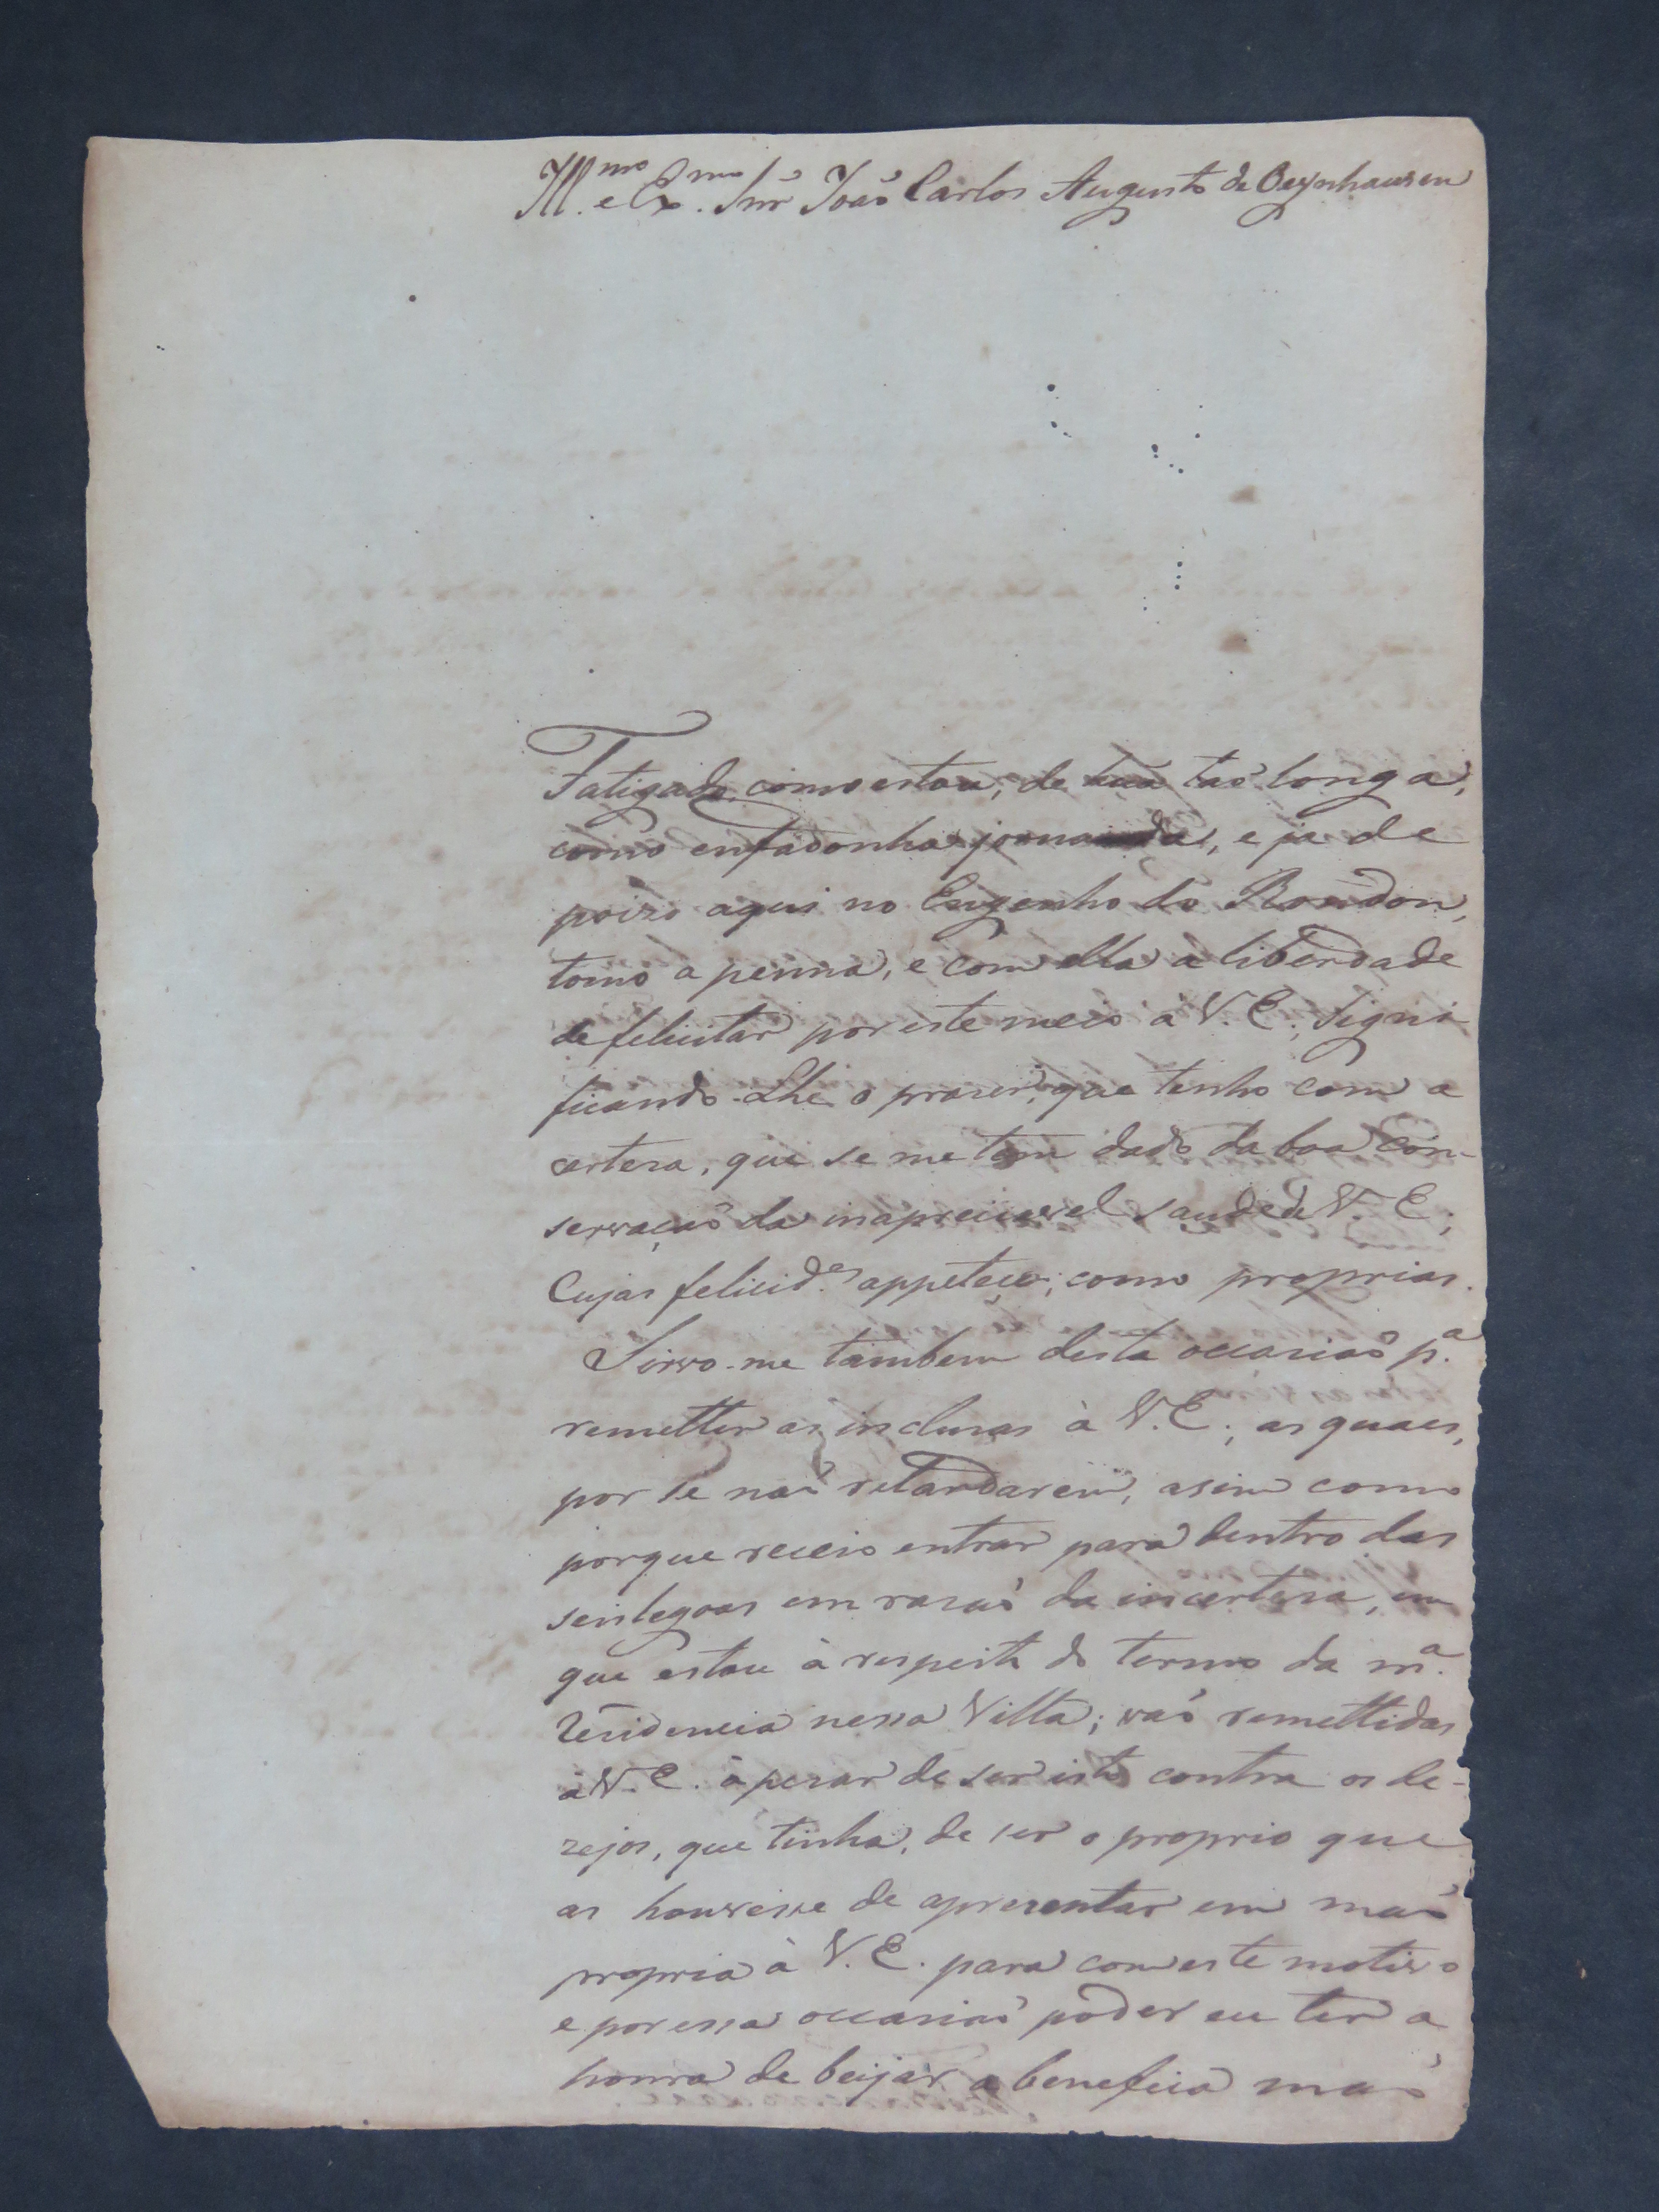 Ill.mo e Ex.mo Snr João Carlos Augusto de Oeynhausen
Fatigado, como estou, de hua taõ longa,
como enfadonha jornada, e ja de
poizo aqui no Engenho do Rondon,
tomo a penna, e com ella a liberdade
de felicitar por este meio á V. E., signi
ficando-Lhe o praser, que tenho com a
certesa, que se me tem dado da boa con-
servaçaõ da inapreciavel saude de V. E.;
Cujas felicid.es appeteço, como proprias.
Sirvo-me tambem desta occasiaõ p.a
remetter as inclusas à V. E.; as quaes,
por se naõ retardarem, asim como
porque receio entrar para dentro das
seis legoas em rasaõ da incertesa, em
que estou à respeito do termo da m.a
residencia nessa Villa; vaõ remettidas
à V. E. à pesar de ser isto contra os de-
zejos, que tinha, de ser o proprio que
as houvesse de apresentar em maõ
propria à V. E. para com este motivo
e por essa occasiaõ poder eu ter a
honra de beijar a benefica maõ